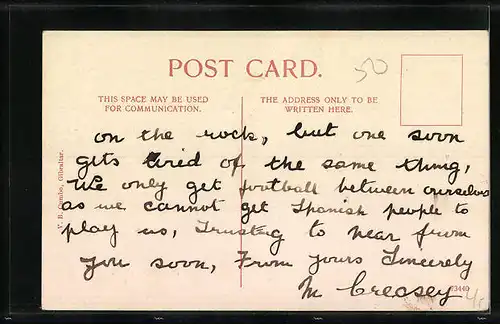 POST CARD.
50
THIS SPACE MAY BE USED
FOR COMMUNICATION.
THE ADDRESS ONLY TO BE
WRITTEN HERE.
on the rock, but one soon
gets tired of the same thing,
We only get football between ourselves
as we cannot get Spanish people to
play us, Trusting to hear from
you soon, From yours Sincerely
M Creasey
V. B. Cumbo, Gibraltar.